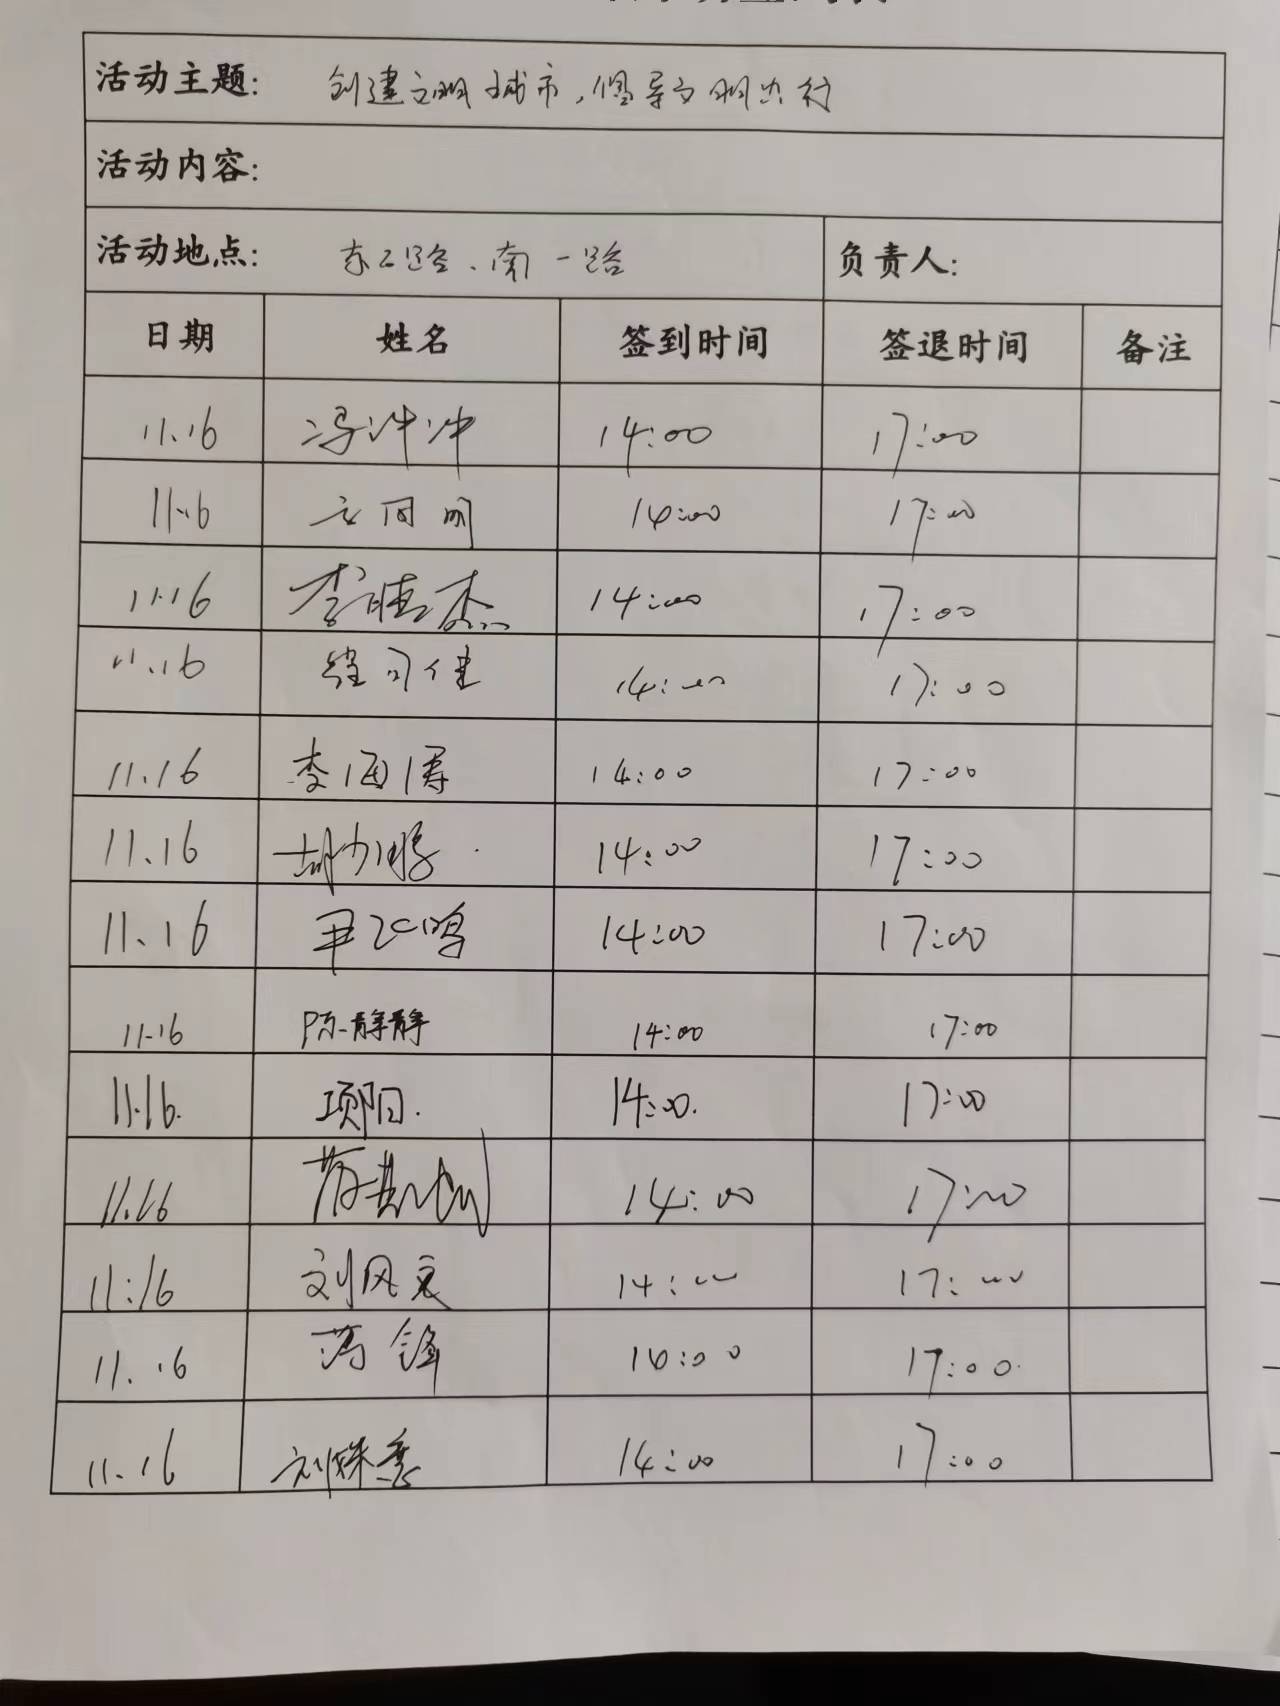 活动主题: 创建文明城市,倡导文明出行
活动内容:
活动地点: 东二路、南一路 负责人:
日期 姓名 签到时间 签退时间 备注
11.16 冯冲冲 14:00 17:00
11.16 14:00 17:00
11.16 李晓杰 14:00 17:00
11.16 14:00 17:00
11.16 李海涛 14:00 17:00
11.16 胡少鹏 14:00 17:00
11.16 尹飞鸣 14:00 17:00
11.16 陈静静 14:00 17:00
11.16. 项阳. 14:00. 17:00
11.16 14:00 17:00
11:16 刘风文 14:00 17:00
11.16 蒋锋 14:00 17:00
11.16 刘姝秀 14:00 17:00